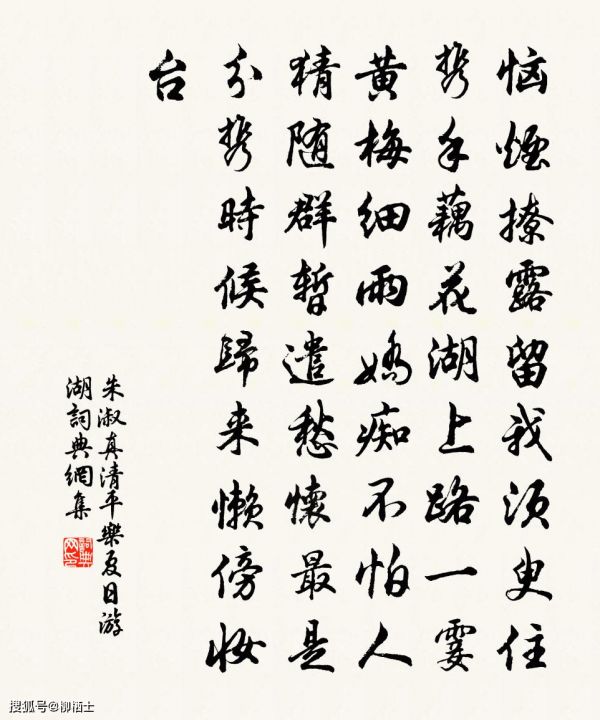 恼煙撩露留我须臾住
携手藕花湖上路一霎
黄梅细雨娇痴不怕人
猜随群暫遣愁懷最是
分携時候歸来懒傍妝
台
朱淑真清平樂夏日游
湖詞典網集
搜狐号@柳栖士